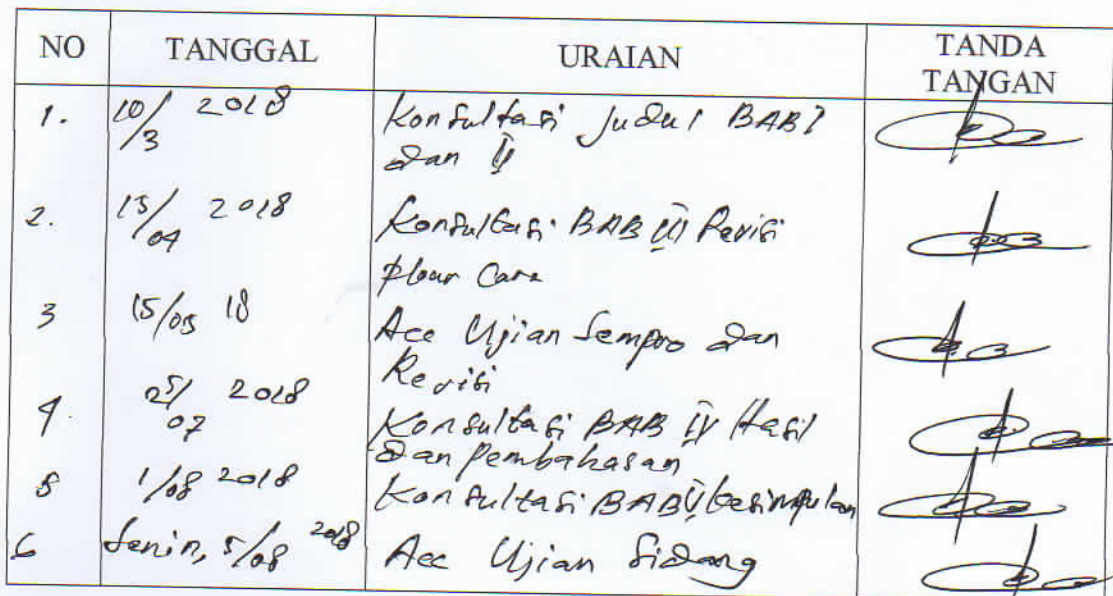 NO TANGGAL URAIAN TANDA TANGAN
1. 10/3 2018 Konsultasi Judul BAB I
dan II
2. 13/04 2018 Konsultasi BAB III Revisi
Flour Care
3 15/05 18 Acc Ujian Sempro dan
Revisi
4. 25/07 2018 Konsultasi BAB IV Hasil
dan Pembahasan
5 1/08 2018 Konsultasi BAB V, kesimpulan
6 Senin, 5/08 2018 Acc Ujian Sidang